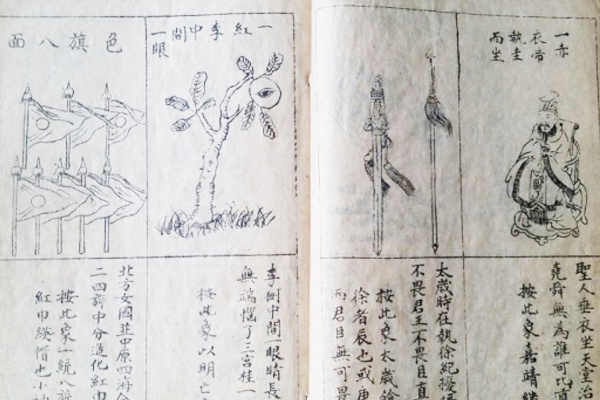 一赤
衣帝
執圭
而坐
聖人垂衣坐天堂治
堯舜無為誰可比
按此象嘉晴
太歲時在執徐紀擾
不畏君王不畏臣直
按此象太歲論
徐者辰也或庚
而君臣無可畏
一紅李中間一眼
李樹中間一眼睛長
無端惱了三宮桂一
按此象以明亡
色旗八面
北方女國並中原四海
二四旂中分造化紅巾
按此象一統八旗
紅巾纓帽也小